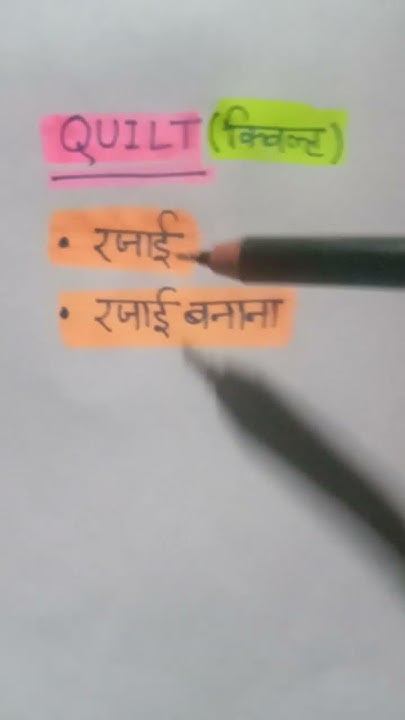 QUILT (क्विल्ट)
• रजाई
• रजाई बनाना